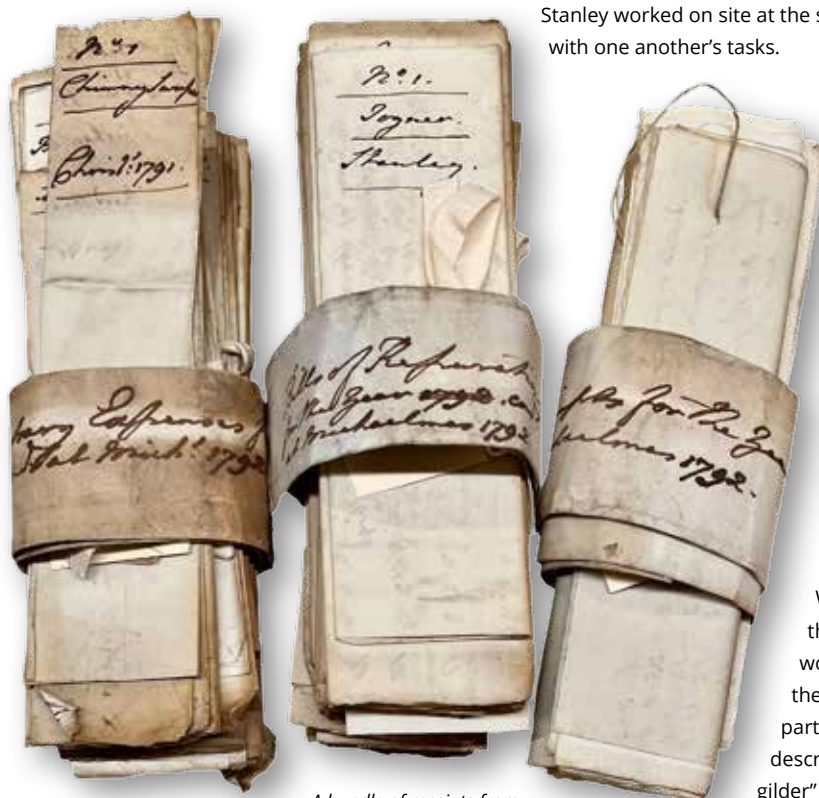 Stanley worked on site at the s
with one another's tasks.
No. 1
Chimney Sweep
Christs: 1791.
No. 1.
Joyner.
Stanley.
Expenses
at Mich: 1792
Bills of Reparati
the Year
Michaelmas 1792
for the Yea
haelmas 1792.
W
th
wo
the
part
descr
gilder"
A bundle of receipts from